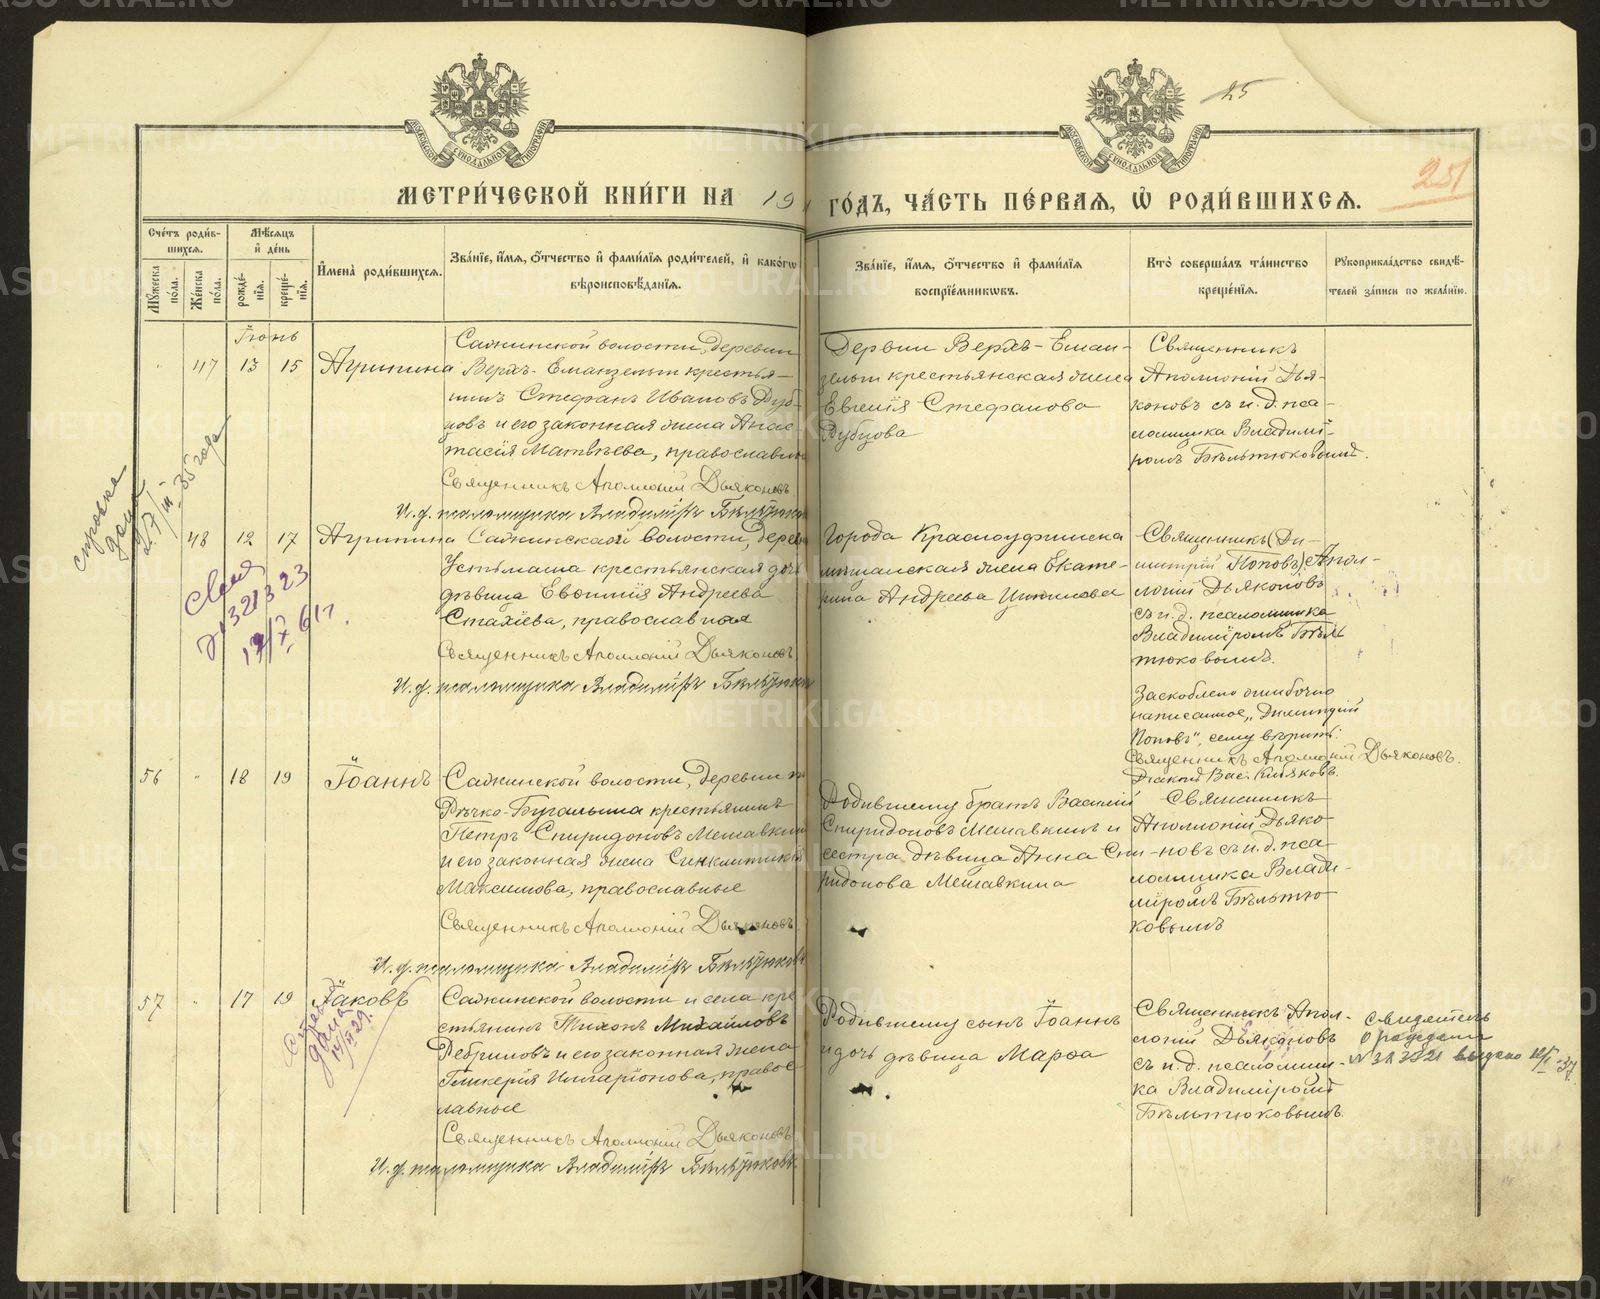 25
251
МОСКОВСКОЙ СѴНОДАЛЬНОЙ ТИПОГРАФИИ
МОСКОВСКОЙ СѴНОДАЛЬНОЙ ТИПОГРАФИИ
МЕТРИ́ЧЕСКОЙ КНИ́ГИ НА 19
ГО́ДЪ, ЧА́СТЬ ПЕ́РВАЯ, Ѡ РОДИ́ВШИХСЯ.
Сче́тъ роди́в-
шихся.
Му́жеска по́ла.
Же́нска по́ла.
Мѣ́сяцъ
и҆ де́нь
рожде́-
нїя.
креще́-
нїя.
И҆мена̀ роди́вшихся.
Зва́нїе, и҆́мя, ѻ҆́тчество и҆ фами́лїя роди́телей, и҆ како́гѡ
вѣроисповѣ́данїя.
Зва́нїе, и҆́мя, ѻ҆́тчество и҆ фами́лїя
воспрїе́мникѡвъ.
Кто̀ соверша́лъ та́инство
креще́нїя.
Рꙋкоприкла́дство свидѣ́-
телей за́писи по жела́нїю.
Іюнь
47 13 15 Агрипина
Сажинской волости, деревни
Верхъ-Еманзельги крестья-
нинъ Стефанъ Ивановъ Дуб-
цовъ и его законная жена Анас-
тасія Матвѣева, православные
Священникъ Аполлоній Дьяконовъ
И.д. псаломщика Владиміръ Бѣльтюковъ
Дервни Верхъ-Еман-
зельги крестьянская жена
Евгенія Стефанова
Дубцова
Священникъ
Аполлоній Дья-
коновъ съ и.д. пса-
ломщика Владимі-
ромъ Бѣльтюковымъ.
справка
дана
27/III 35 года
48 12 17 Агрипина
Сажинской волости, дерев
Устьмаша крестьянская дочь
дѣвица Евѳимія Андреева
Стахіева, православная
Священникъ Аполлоній Дьяконовъ
И.д. псаломщика Владиміръ Бѣльтюковъ
Города Красноуфимска
мѣщанская жена Екате-
рина Андреева
Священникъ (Ди-
митрій Поповъ) Апол-
лоній Дьяконовъ
съ и.д. псаломщика
Владиміромъ Бѣль
тюковымъ.
Заскоблено ошибочно
написанное „Димитрій
Поповъ“, сему вѣрить.
Священникъ Аполлоній Дьяконовъ.
Діаконъ Вас.
56 18 19 Іоаннъ
Сажинской волости, деревни
Рѣчко-Бугалыша крестьянинъ
Петръ Спиридоновъ Мешавкинъ
и его законная жена Синклитикія
Максимова, православные
Священникъ Аполлоній Дьяконовъ
И.д. псаломщика Владиміръ Бѣльтюковъ
Родившему братъ Василій
Спиридоновъ Мешавкинъ и
сестра дѣвица Анна Спи-
ридонова Мешавкина
Священникъ
Аполлоній Дьяко-
новъ съ и.д. пса-
ломщика Влади-
міромъ Бѣльтю-
ковымъ
57 17 19 Іаковъ
Сажинской волости и села кре
стьянинъ Тихонъ Михайловъ
Ребриловъ и его законная жена
Гликерія Илларіонова, правос-
лавные
Священникъ Аполлоній Дьяконовъ
И.д. псаломщика Владиміръ Бѣльтюковъ
Родившему сынъ Іоаннъ
и дочь дѣвица Марѳа
Священникъ Апол-
лоній Дьяконовъ
съ и.д. псаломщи-
ка Владиміромъ
Бѣльтюковымъ
METRIKI.GASO-URAL.RU